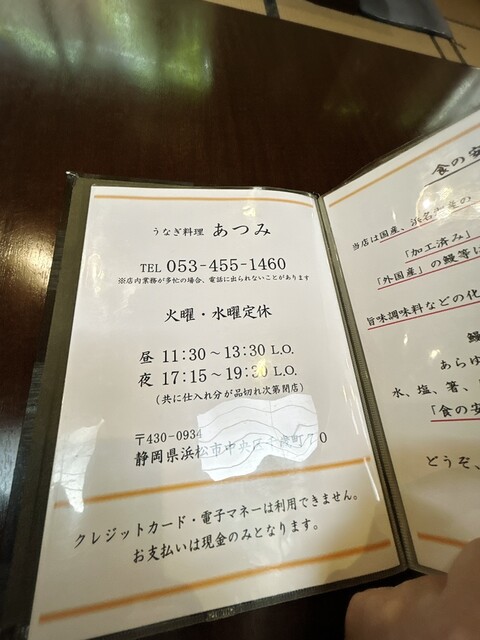 うなぎ料理 あつみ
TEL 053-455-1460
※店内業務が多忙の場合、電話に出られないことがあります
火曜・水曜定休
昼 11:30～13:30 L.O.
夜 17:15～19:30 L.O.
(共に仕入れ分が品切れ次第閉店)
〒430-0934
静岡県浜松市中央区千歳町70
クレジットカード・電子マネーは利用できません。
お支払いは現金のみとなります。
食の安
当店は国産、浜名
「加工済み」
「外国産」の鰻等に
旨味調味料などの化
鰻
あらゆ
水、塩、箸、
「食の安
どうぞ、